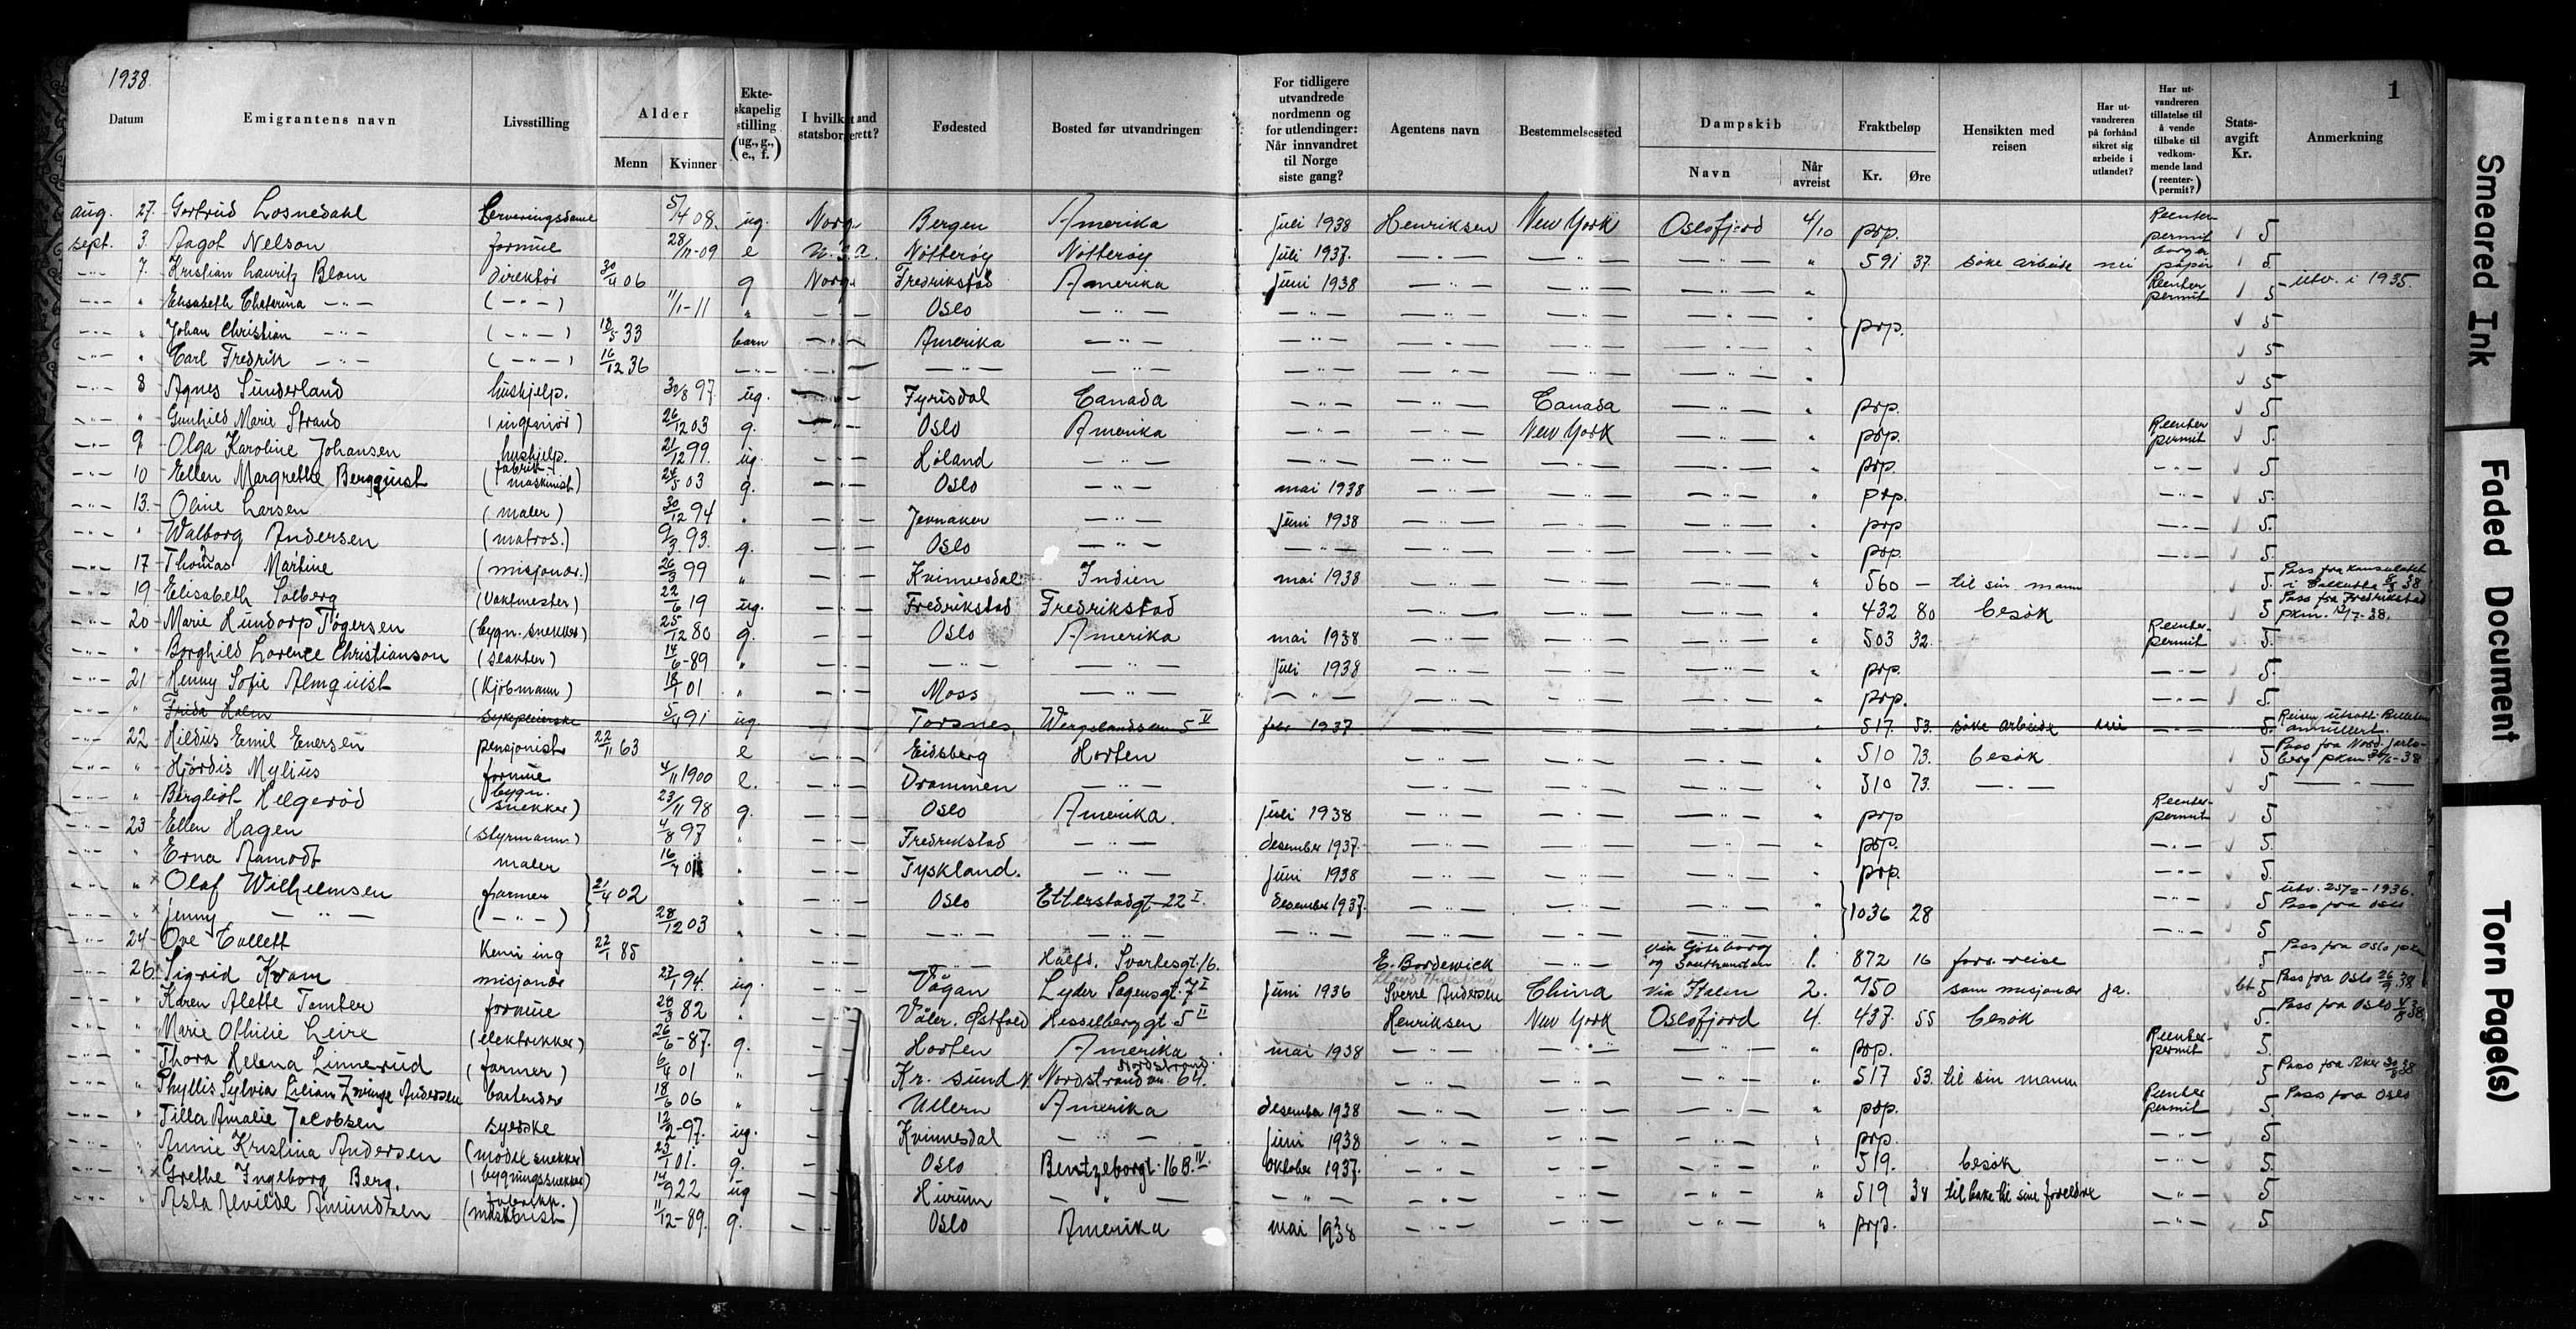 1938
1
Datum
Emigrantens navn
Livsstilling
Alder
Menn
Kvinner
Ekteskapelig stilling (ug., g., e., f.)
I hvilket land statsborgerett?
Fødested
Bosted før utvandringen
For tidligere utvandrede nordmenn og for utlendinger: Når innvandret til Norge siste gang?
Agentens navn
Bestemmelsessted
Dampskib
Navn
Når avreist
Fraktbeløp
Kr.
Øre
Hensikten med reisen
Har utvandreren på forhånd sikret sig arbeide i utlandet?
Har utvandreren tillatelse til å vende tilbake til vedkommende land (reenterpermit?)
Statsavgift Kr.
Anmerkning
aug. 27. Gertrud Losnedahl Serveringsdame 5/4 08. ug. Norge Bergen Amerika Juli 1938 Henriksen New York Oslofjord 4/10 prp. Reenterpermit 5
sept. 3. Aagot Nelson formue 28/11-09 e U.S.A. Nøtterøy Nøtterøy Juli 1937. —"— —"— —"— " 591 37. søke arbeide nei borgerpapir 5.
—"— 7. Kristian Lauritz Blom direktør 30/4 06 g Norge Fredrikstad Amerika Juni 1938 —"— —"— —"— " Reenter permit 5 - Utv. i 1935.
—"— " Elisabeth Catarina —"— (—"—) 11/1-11 " —"— Oslo —"— —"— —"— —"— —"— " 5
—"— " Johan Christian —"— (—"—) 18/5 33 barn —"— Amerika —"— —"— —"— —"— —"— " prp. 5
—"— " Carl Fredrik —"— (—"—) 16/12 36 —"— —"— —"— —"— —"— —"— —"— —"— " 5
—"— 8 Agnes Sunderland hushjelp. 30/8 97. ug. —"— Fyrisdal Canada —"— —"— Canada —"— " prp. 5
—"— " Gunhild Marie Strand (ingeniør) 26/12 03 g. —"— Oslo Amerika —"— —"— New York —"— " prp. Reenter permit 5.
—"— 9 Olga Karoline Johansen hushjelp. 21/12 99. ug. —"— Høland —"— —"— —"— —"— —"— " prp. —"— 5
—"— 10 Ellen Margrethe Bergquist (fabrikkmaskinist) 24/5 03 g. —"— Oslo —"— mai 1938 —"— —"— —"— " prp. —"— 5.
—"— 13. Oline Larsen (maler) 30/12 94 " —"— Jevnaker —"— Juni 1938 —"— —"— —"— " prp —"— 5.
—"— " Walborg Andersen (matros.) 9/3. 93. g. —"— Oslo —"— —"— —"— —"— —"— " prp. —"— 5.
—"— 17 Thomas Martine (misjonær.) 26/3 99 " —"— Kvinnesdal Indien mai 1938 —"— —"— —"— " 560 — til sin mann 5. Pass fra konsulatet i Calkutta 8/3 38
—"— 19. Elisabeth Solberg (Vaktmester) 22/6 19 ug. —"— Fredrikstad Fredrikstad —"— —"— —"— " 432 80 besøk 5 Pass fra Fredrikstad pkm. 12/7-38.
—"— 20 Marie Hundorp Tøgersen (bygn. snekker) 25/12 80 g. —"— Oslo Amerika mai 1938 —"— —"— —"— " 503 32. Reenter-permit 5.
—"— " Borghild Lorence Christianson (slakter) 14/6-89 " —"— —"— —"— Juli 1938 —"— —"— —"— " prp. —"— 5.
—"— 21 Henny Sofie Almquist (Kjøbmann) 18/1 01 " —"— Moss —"— —"— —"— —"— —"— " prp. —"— 5.
—"— " Frida Holm sykepleierske 5/4 91 ug. —"— Torsnes. Wergelandsvn 5 II febr 1937 —"— —"— —"— " 517. 53. søke arbeide nei —"— 5. Reisen utsatt. Billetten annullert.
—"— 22 Hildus Emil Enersen pensjonist 22/11 63 e —"— Eidsberg Horten —"— —"— —"— " 510 73. besøk 5 Pass fra Nord. Jarlsberg pkm.
—"— " Hjørdis Mylius formue 4/11 1900 e. —"— Drammen —"— —"— —"— —"— " 510 73. —"— 5 —"—
—"— " Bergliot Helgerød (bygn. snekker) 23/11 98 g. —"— Oslo Amerika. Juli 1938 —"— —"— —"— " prp Reenter-permit 5
—"— 23 Ellen Hagen (Styrmann) 4/8 97 " —"— Fredrikstad —"— desember 1937. —"— —"— —"— " prp. —"— 5.
—"— " Erna Aamodt maler 16/7 01 " —"— Tyskland. —"— Juni 1938 —"— —"— —"— " prp. —"— 5.
—"— " x Olaf Wilhelmsen farmer 21/4 02 " —"— Oslo Etterstadgt 22 I. desember 1937. —"— —"— —"— " 1036 28 —"— 5 Utv. 25/2-1936. Pass fra Oslo
—"— " x Jenny —"— (—"—) 28/12 03 " —"— —"— —"— —"— —"— —"— —"— " 5
—"— 24 Ove Collett Kemi ing 22/1 85 " —"— —"— Halfd. Svartesgt. 16. E. Bordewick —"— via Göteborg og Southamton 1. 872 16 forr. reise 5 Pass fra Oslo pkm
—"— 26. Sigrid Kvam misjonær 27/1 94. ug. —"— Vågan Lyder Sagensgt. 7 I Juni 1936 Sverre Andersen China via Italien 2. 750 som misjonær ja. bt 5 Pass fra Oslo 26/9 38
—"— " Karen Alette Tomter formue 28/3 82 " —"— Våler. Østfold Hesselberggt. 5 II Henriksen New York Oslofjord 4. 437. 55 besøk 5. Pass fra Oslo 4/8 38
—"— " Marie Othilie Leire (elektrikker) 26/6-87. g. —"— Horten Amerika mai 1938 —"— —"— —"— " prp. Reenter-permit 5.
—"— " Thora Helena Linnerud (farmer) 6/4 01 " —"— Kr. sund N. Nordstrandvn. 64. Nordstrand —"— —"— —"— " 517 53. til sin mann 5 Pass fra Aker 30/8 38
—"— " Phyllis Sylvia Lilian Zwinge Andersen bartender 18/6 06 " —"— Ullern Amerika desember 1938 —"— —"— —"— " prp. Reenter permit 5. Pass fra Oslo
—"— " Tilla Amalie Jacobsen syerske 12/2-97. ug. —"— Kvinnesdal —"— Juni 1938 —"— —"— —"— " prp. —"— 5
—"— " Annie Kristina Andersen (modellsnekker) 23/1 01. g. —"— Oslo Bentzeborgt. 16 B. IV. oktober 1937. —"— —"— —"— " 519. besøk 5.
—"— " x Grethe Ingeborg Berg. (bygningssnekker) 14/9 22 ug —"— Hurum —"— —"— —"— —"— —"— " 519 38 tilbake til sine foreldre —"— 5
—"— " Asta Alvilde Amundsen (fabrikk. maskinist) 11/12-89. g. —"— Oslo Amerika mai 1938 —"— —"— —"— " prp. —"— 5
Smeared Ink
Faded Document
Torn Page(s)